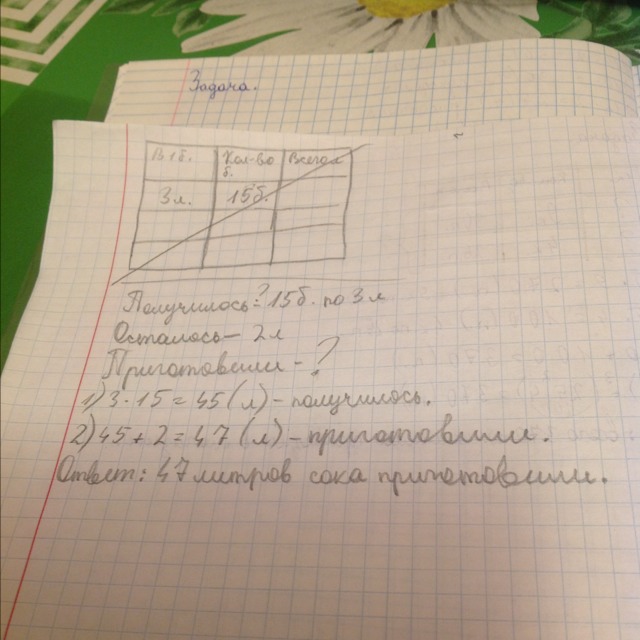 Задача.
В 1б. Кол-во б. Всего л
3л. 15б.
Получилось-? 15б. по 3 л
Осталось - 2л
Приготовили - ?
1) 3 · 15 = 45 (л) - получилось.
2) 45 + 2 = 47 (л) - приготовили.
Ответ: 47 литров сока приготовили.